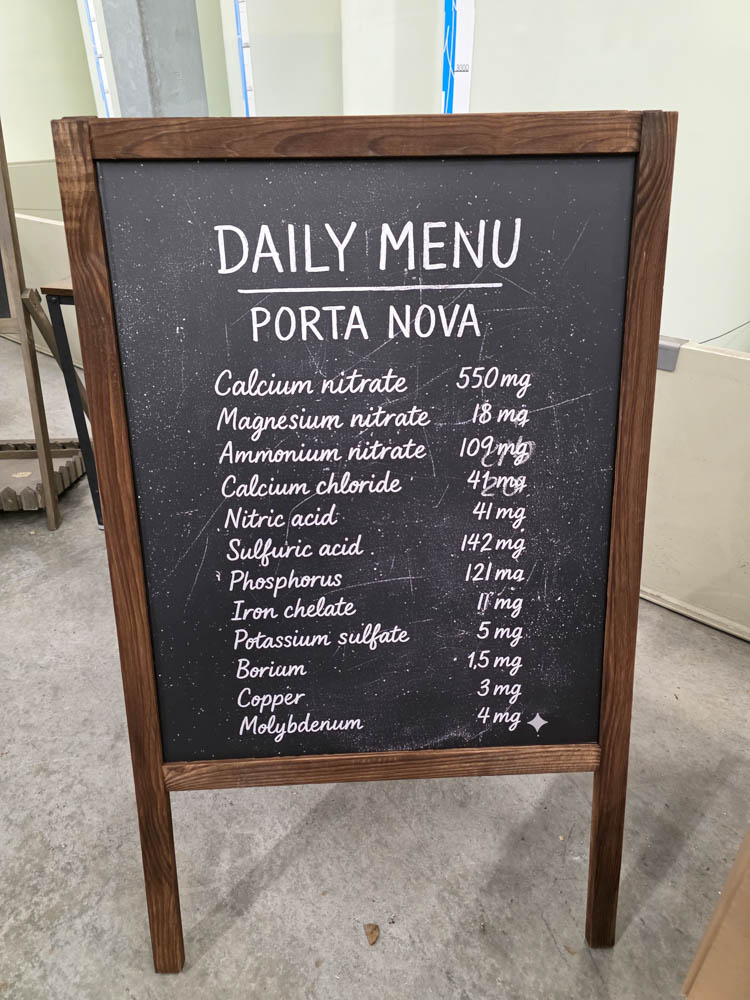 3000
DAILY MENU
PORTA NOVA
Calcium nitrate 550 mg
Magnesium nitrate 18 mg
Ammonium nitrate 109 mg
Calcium chloride 41 mg
Nitric acid 41 mg
Sulfuric acid 142 mg
Phosphorus 121 mg
Iron chelate 11 mg
Potassium sulfate 5 mg
Borium 1,5 mg
Copper 3 mg
Molybdenum 4 mg